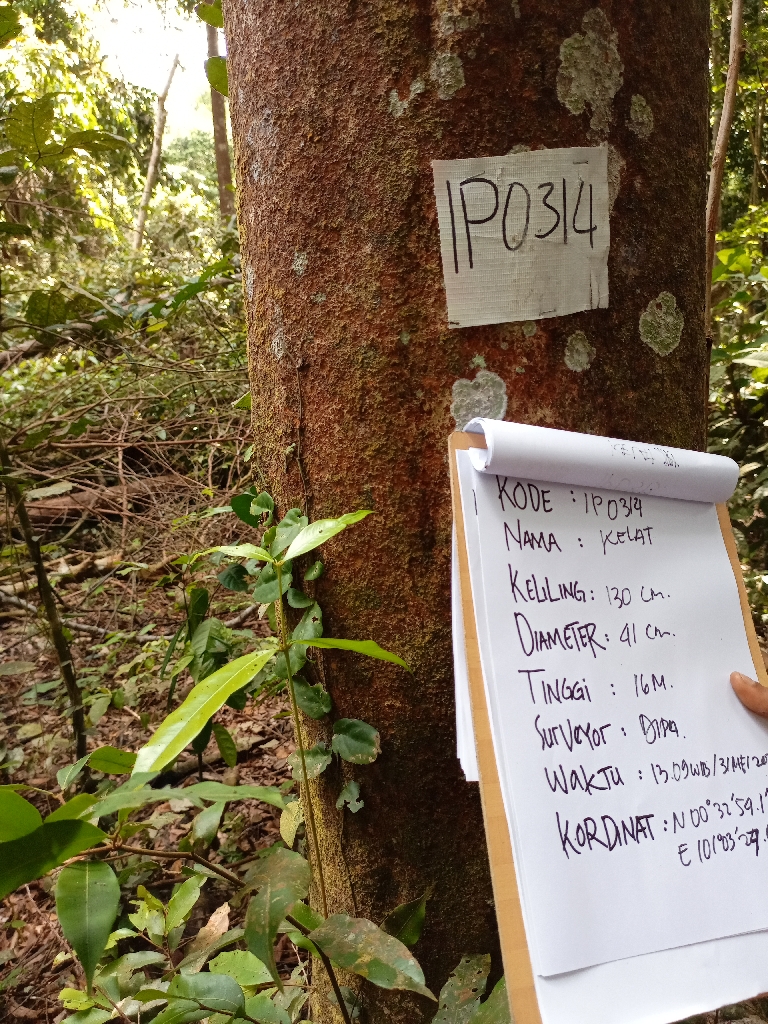 IP0314
KODE : IP0314
NAMA : KELAT
KELILING : 130 cm.
DIAMETER : 41 cm.
TINGGI : 16 M.
SURVEYOR : DIPA.
WAKTU : 13.09 WIB/31 MEI
KORDINAT : N 00°32'59.1"
E 101°03'29.